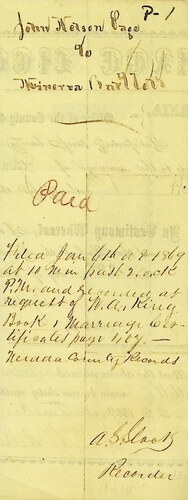 P-1
John Nelson Page
to
Minerva
Paid
Filed Jan 6th A.D. 1869
at 10 Min past 2 o'clock
P.M. and recorded at
request of W. A. King
Book 1 Marriage Cer
tificates page 127. —
Nevada County Records
Recorder